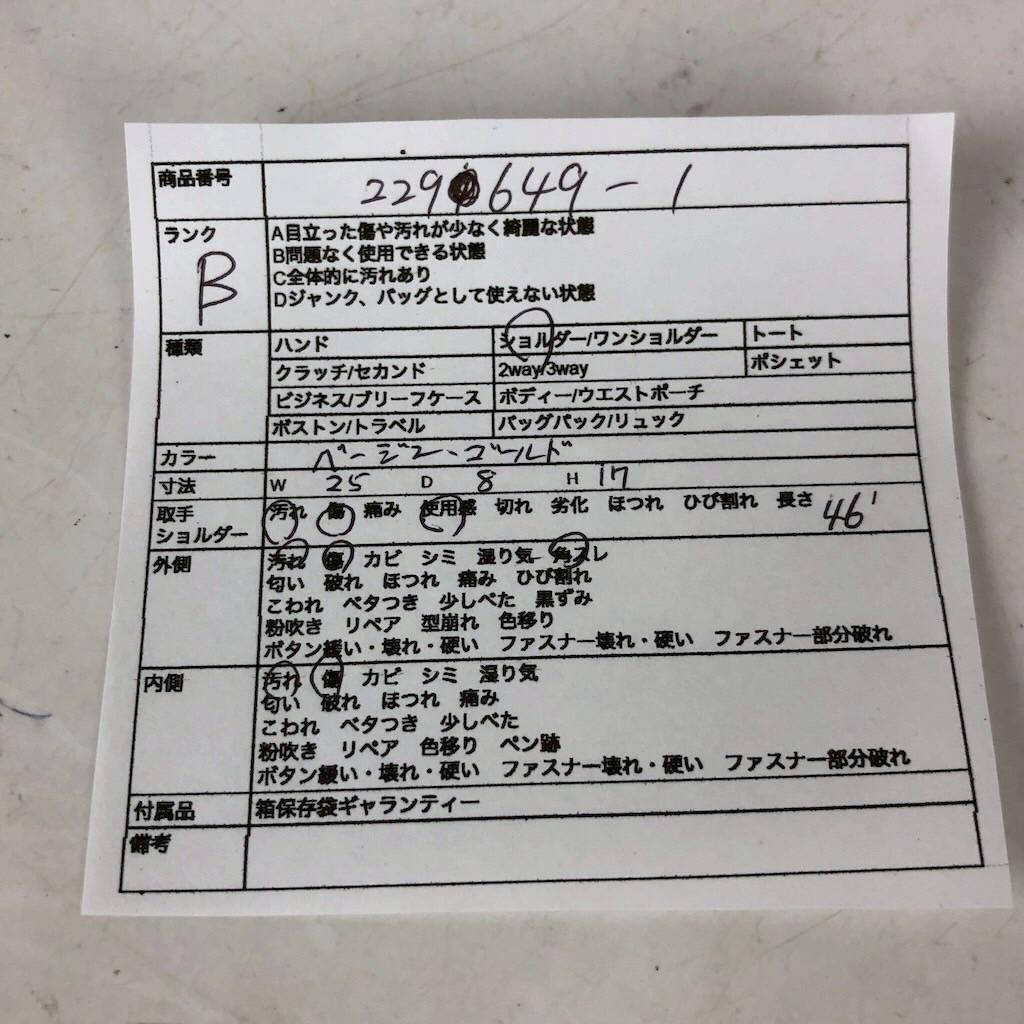 商品番号 229 649-1
ランク B
A目立った傷や汚れが少なく綺麗な状態
B問題なく使用できる状態
C全体的に汚れあり
Dジャンク、バッグとして使えない状態
種類 ハンド ショルダー/ワンショルダー トート
クラッチ/セカンド 2way/3way ポシェット
ビジネス/ブリーフケース ボディー/ウエストポーチ
ボストン/トラベル バッグパック/リュック
カラー ベージュ・ゴールド
寸法 W 25 D 8 H 17
取手 汚れ 傷 痛み 使用感 切れ 劣化 ほつれ ひび割れ 長さ 46
ショルダー
外側 汚れ 傷 カビ シミ 湿り気 角スレ
匂い 破れ ほつれ 痛み ひび割れ
こわれ ベタつき 少しべた 黒ずみ
粉吹き リペア 型崩れ 色移り
ボタン緩い・壊れ・硬い ファスナー壊れ・硬い ファスナー部分破れ
内側 汚れ 傷 カビ シミ 湿り気
匂い 破れ ほつれ 痛み
こわれ ベタつき 少しべた
粉吹き リペア 色移り ペン跡
ボタン緩い・壊れ・硬い ファスナー壊れ・硬い ファスナー部分破れ
付属品 箱保存袋ギャランティー
備考